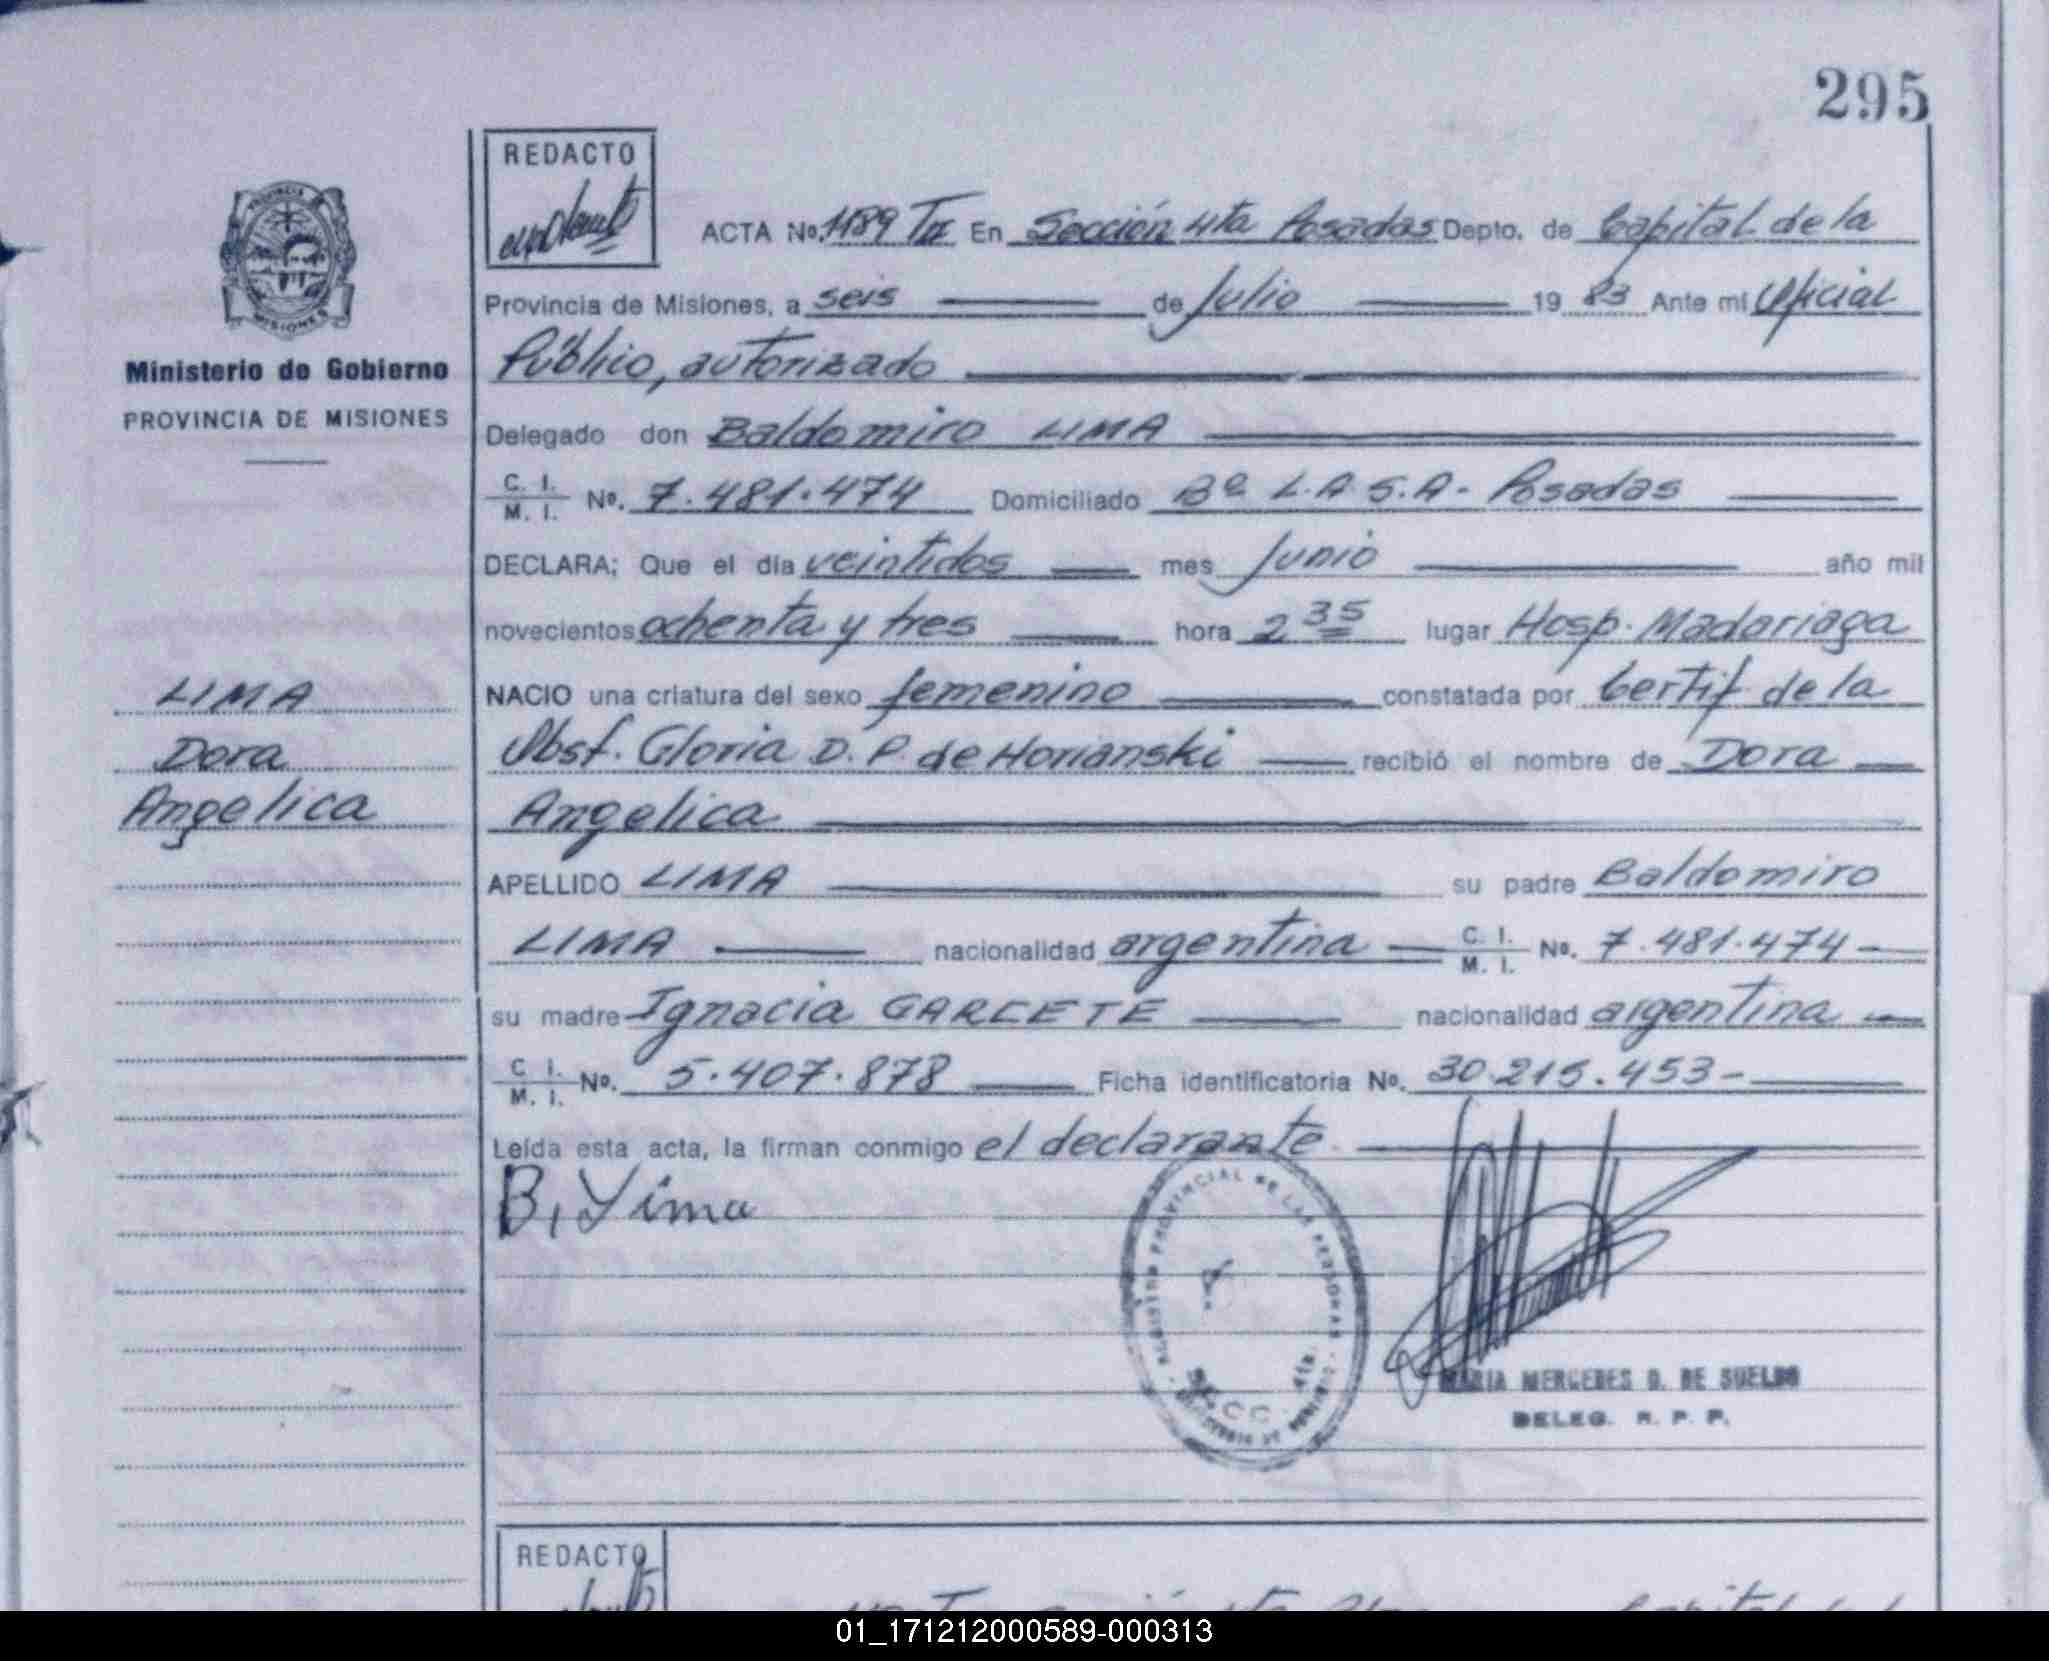 295
REDACTO
ACTA No. 1189 TII En Sección 4ta Posadas Depto. de Capital de la
Provincia de Misiones, a seis de Julio 1983 Ante mi Oficial
Público, autorizado
Ministerio de Gobierno
PROVINCIA DE MISIONES
Delegado don Baldomiro LIMA
C. I. / M. I. No. 7.481.474 Domiciliado Bº L.A.S.A- Posadas
DECLARA; Que el día veintidos mes Junio año mil
novecientos ochenta y tres hora 2 35 lugar Hosp. Madariaga
NACIO una criatura del sexo femenino constatada por Certif de la
Obst. Gloria D. P. de Horianski recibió el nombre de Dora
Angelica
LIMA
Dora
Angelica
APELLIDO LIMA su padre Baldomiro
LIMA nacionalidad argentina C. I. / M. I. No. 7.481.474-
su madre Ignacia GARCETE nacionalidad argentina
C I. / M. I. No. 5.407.878 Ficha identificatoria No. 30.215.453-
Leída esta acta, la firman conmigo el declarante
B, Lima
REGISTRO PROVINCIAL DE LAS PERSONAS
SECC. 4ta.
MARIA MERCEDES D. DE SUELDO
DELEG. R. P. P.
PROVINCIA
MISIONES
REDACTO
01_171212000589-000313